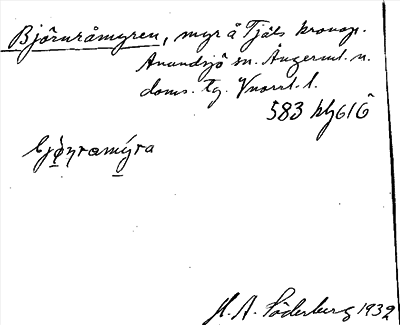 Björnråmyren, myr å Tjäls kronop.
Anundsjö sn. Ångerml. n.
doms. tg. Vnorrl. l.
583 hg616
bjö̀ɳramýra
H. A. Söderberg 1932